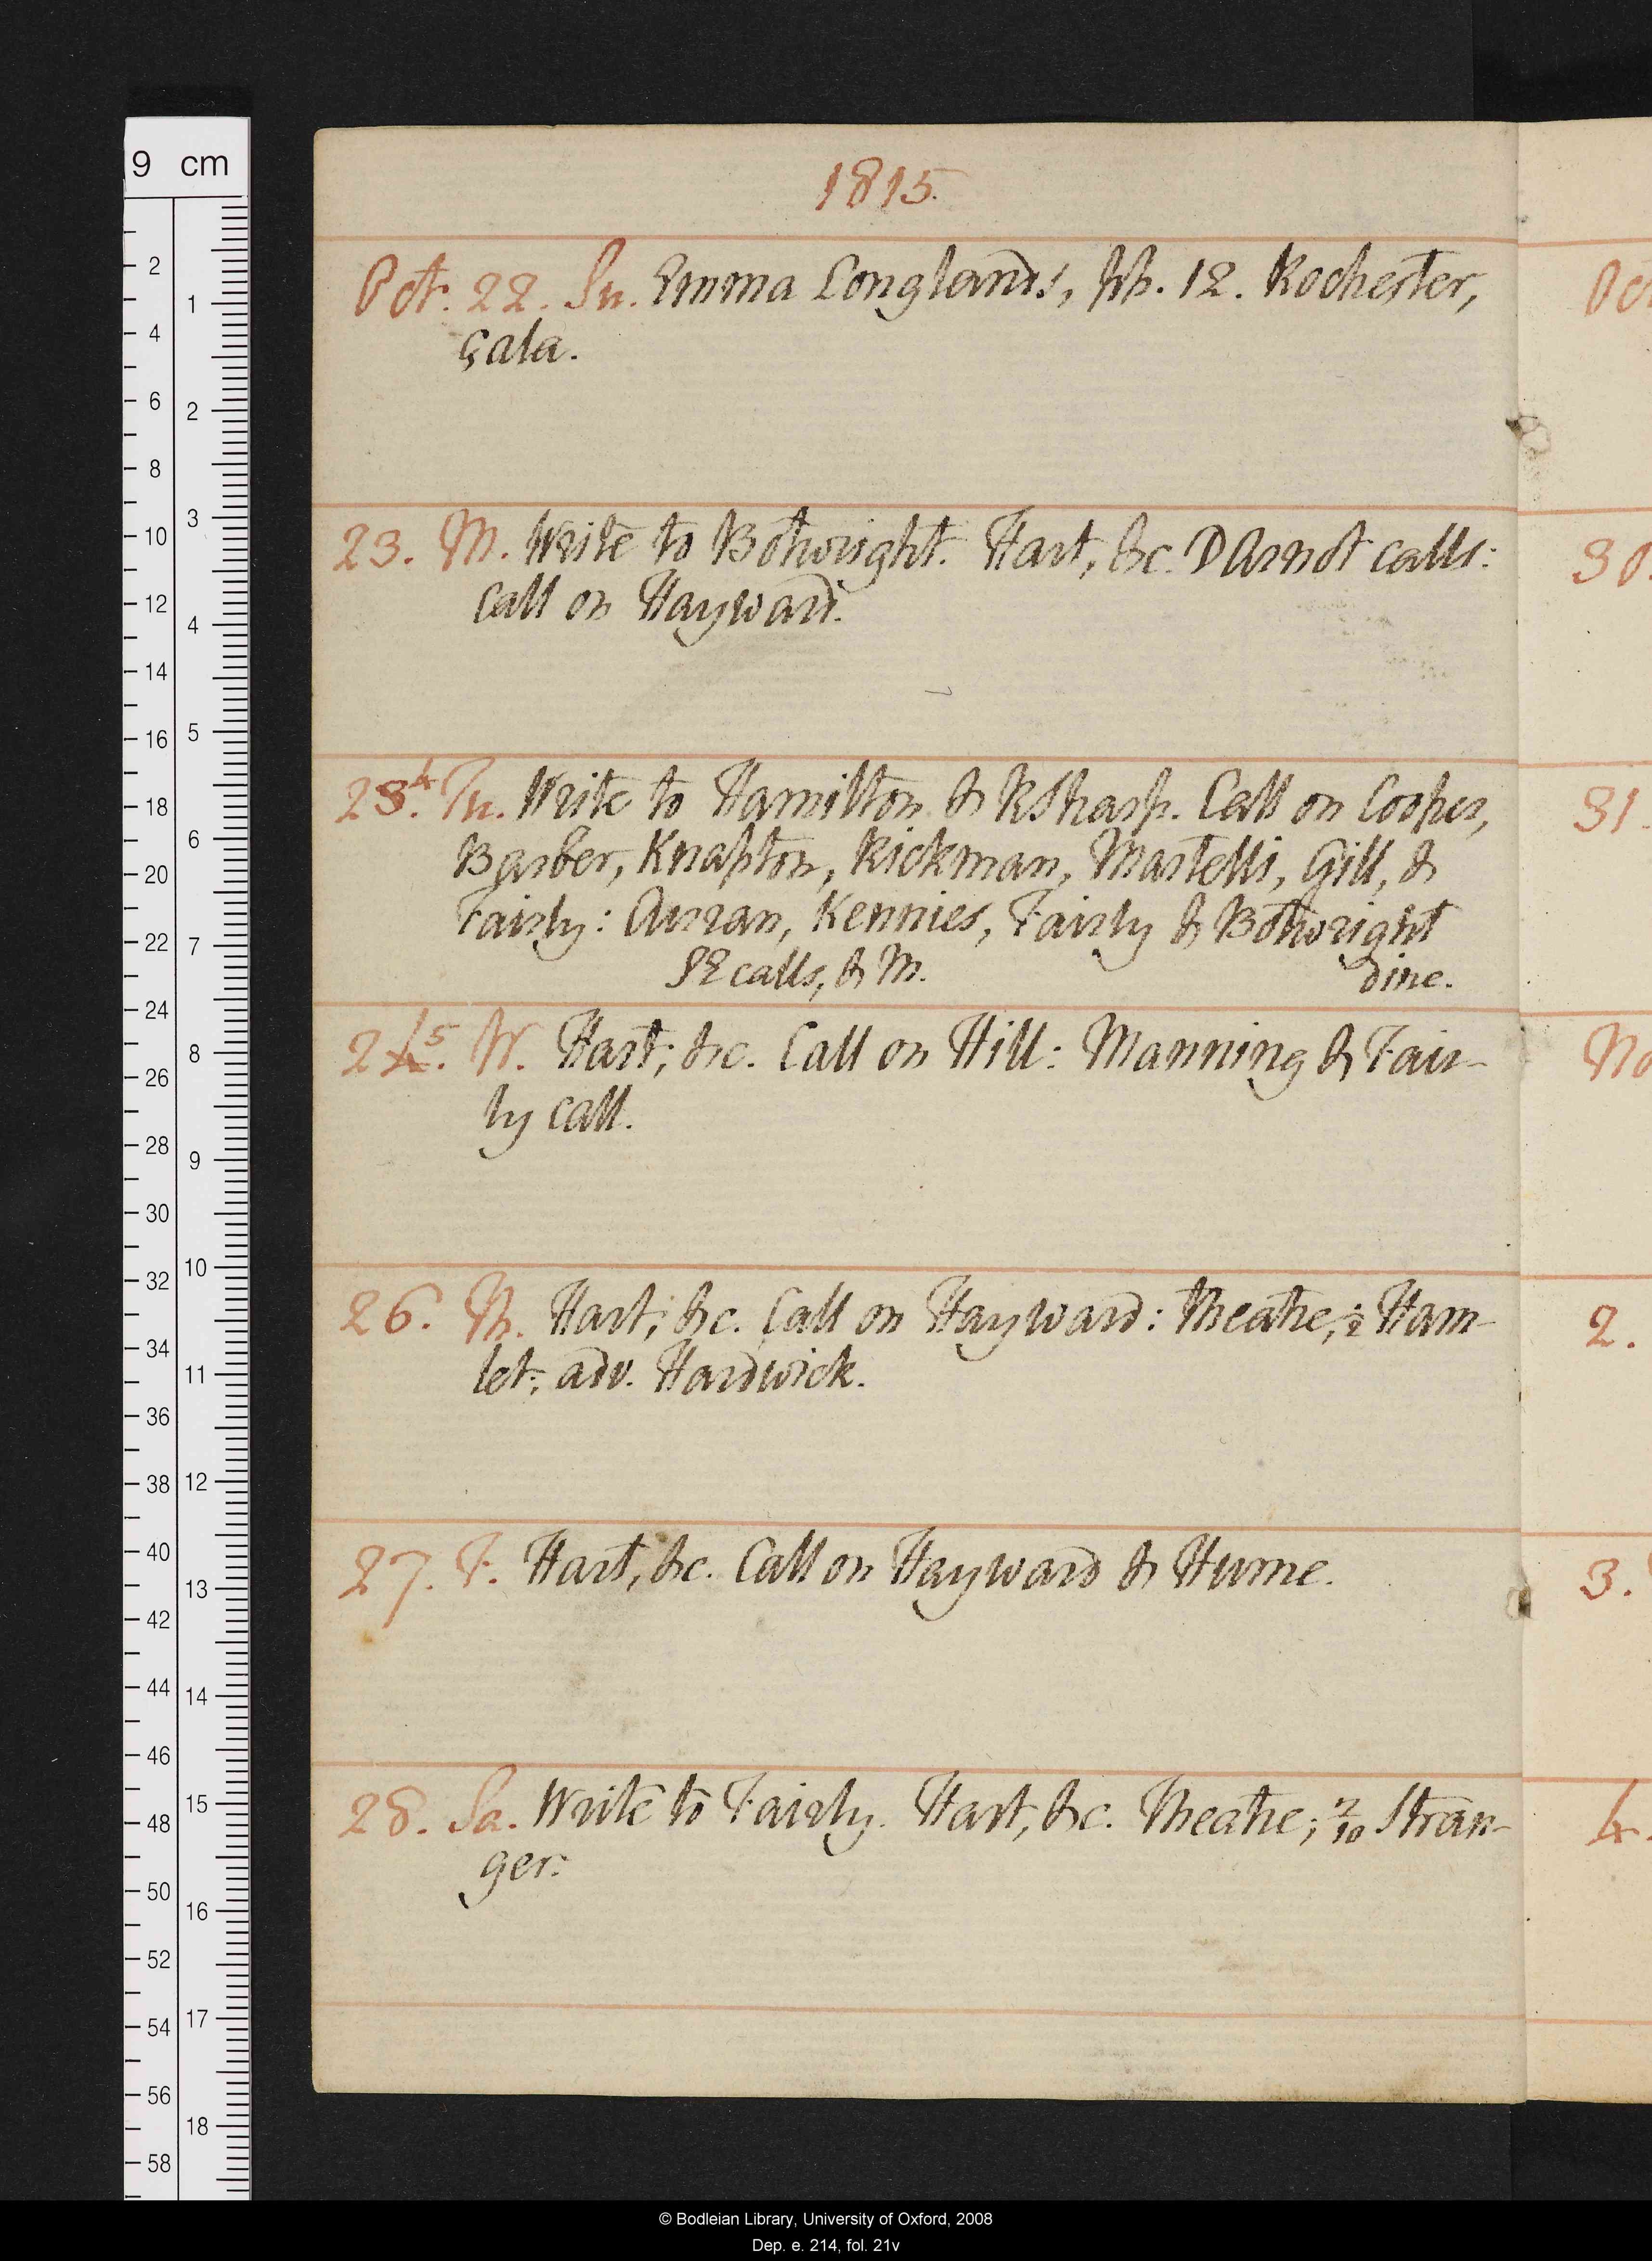 1815.
Oct. 22. Su. Emma Longlands, ph. 12. Rochester,
çala.
23. M. Write to Bothwright. Hart, &c. DArnot calls:
call on Hayward.
234. Tu. Write to Hamilton & RSharp. Call on Cooper,
Barber, Knapton, Rickman, Martelli, Gill, &
Fairly: Curran, Kennies, Fairly & Bothwright
SE calls, & M. dine.
245. W. Hart; &c. Call on Hill: Manning & Fair-
ly call.
26. Th. Hart; &c. Call on Hayward: Theatre, ½ Ham-
let; adv. Hardwick.
27. F. Hart, &c. Call on Hayward & Hume.
28. Sa. Write to Fairly. Hart, &c. Theatre; 2/10 Stran-
ger.
Oc
30.
31.
No
2.
3.
4.
9 cm
© Bodleian Library, University of Oxford, 2008
Dep. e. 214, fol. 21v